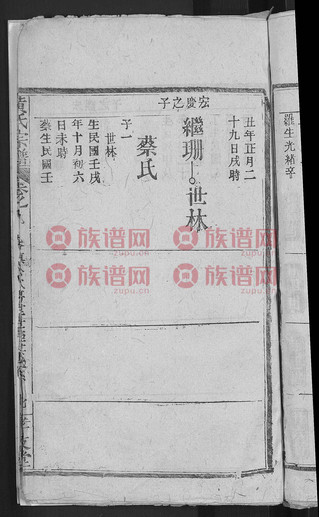 羅生光緒辛
丑年正月二
十九日戌時
宏慶之子
繼珊
世林
蔡氏
子一
世林
生民國壬戌
年十月初六
日未時
蔡生民國壬
族谱网
zupu.cn
族谱网
zupu.cn
族谱网
zupu.cn
族谱网
zupu.cn